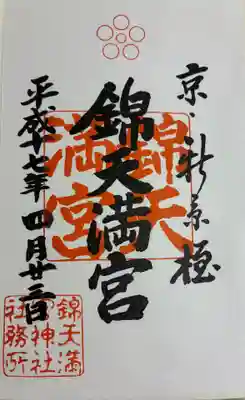 京・新京極
錦天満宮
錦天
満宮
平成十七年四月廿二日
錦天満
宮神社
社務所